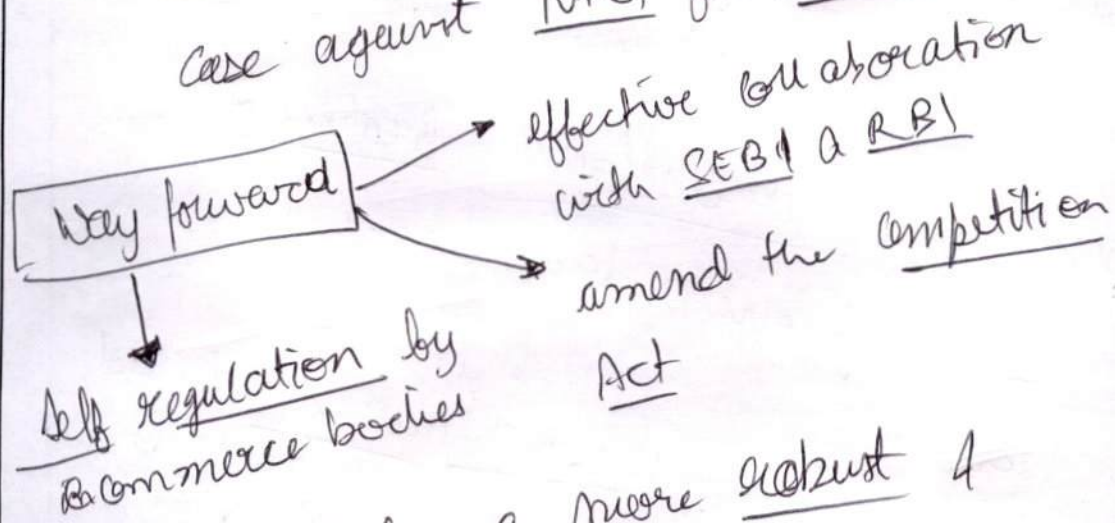 Case against
effective collaboration
with SEBI & RBI
Way forward
amend the Competition
Act
Self regulation by
ecommerce bodies
more robust &